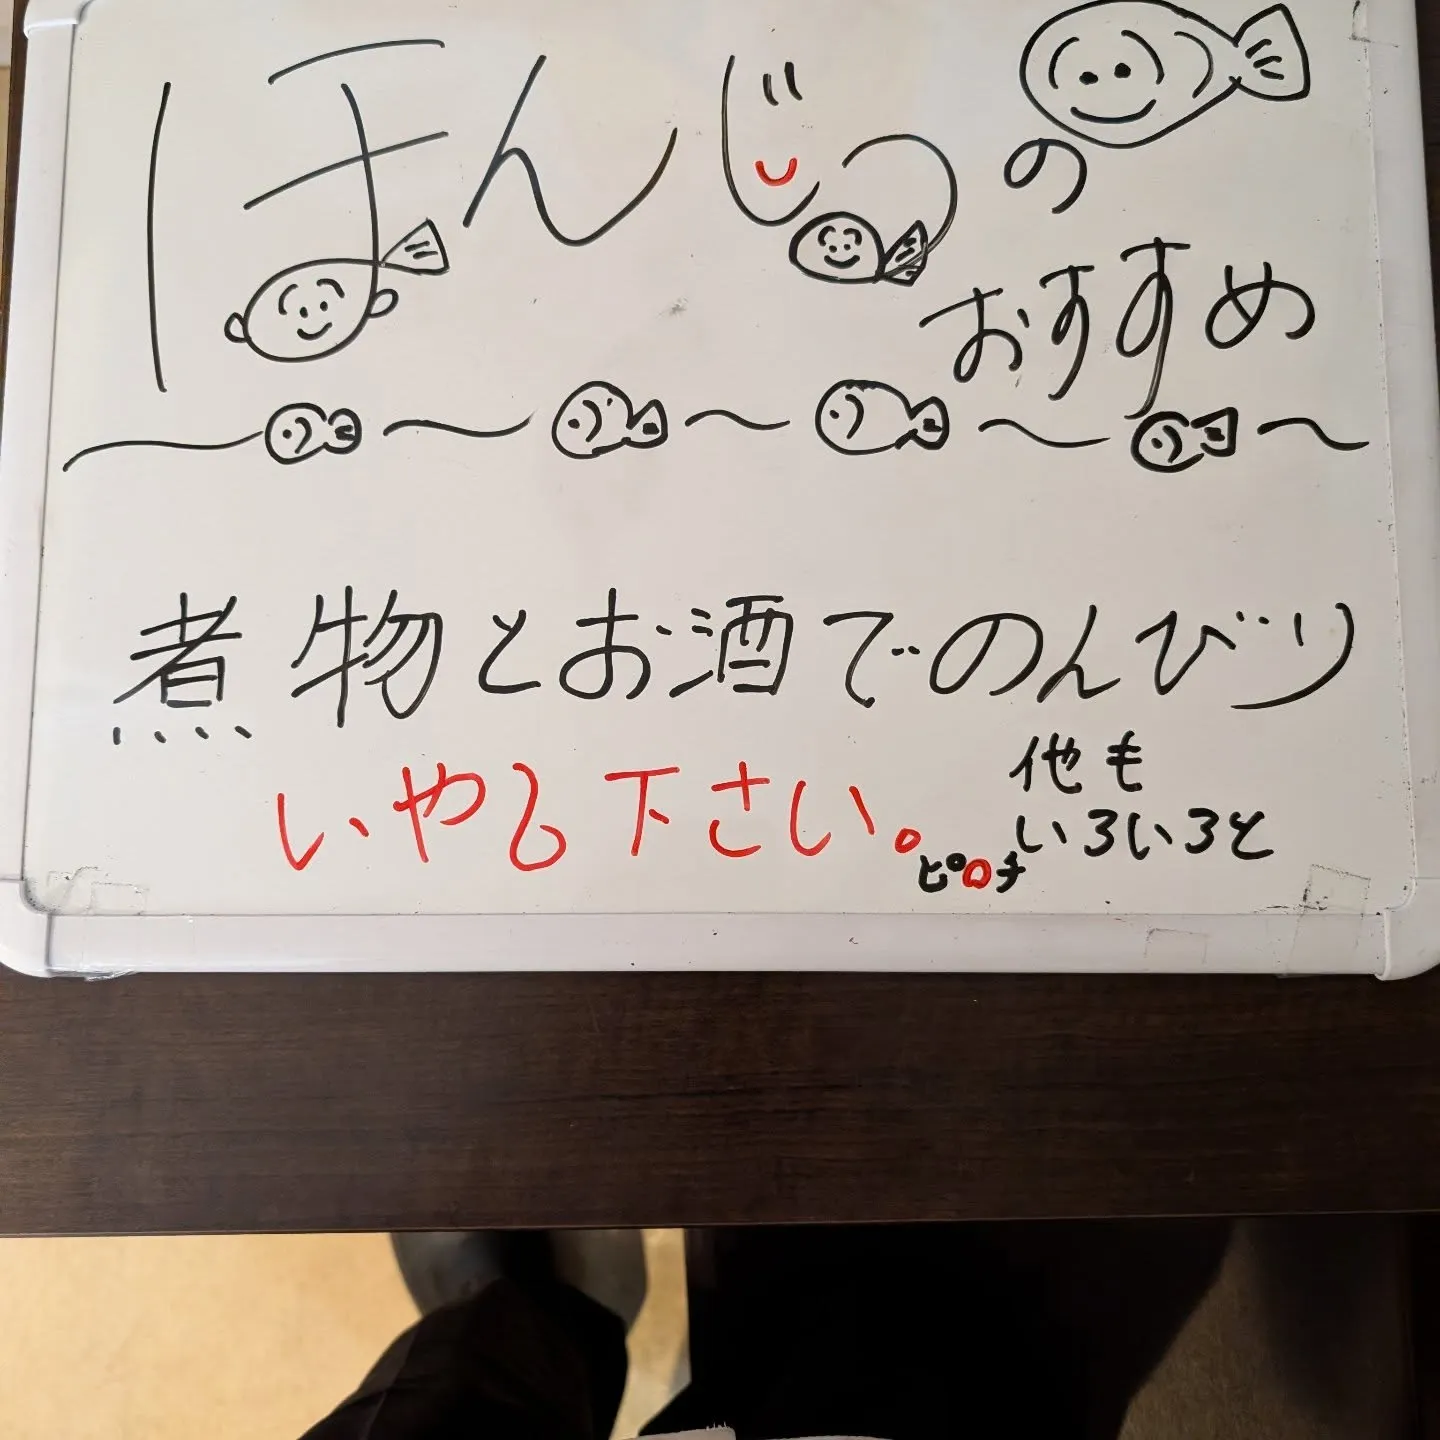 ほんじつの
おすすめ
煮物とお酒でのんびり
いやる下さい。
他も
いろいろと
ピロチ